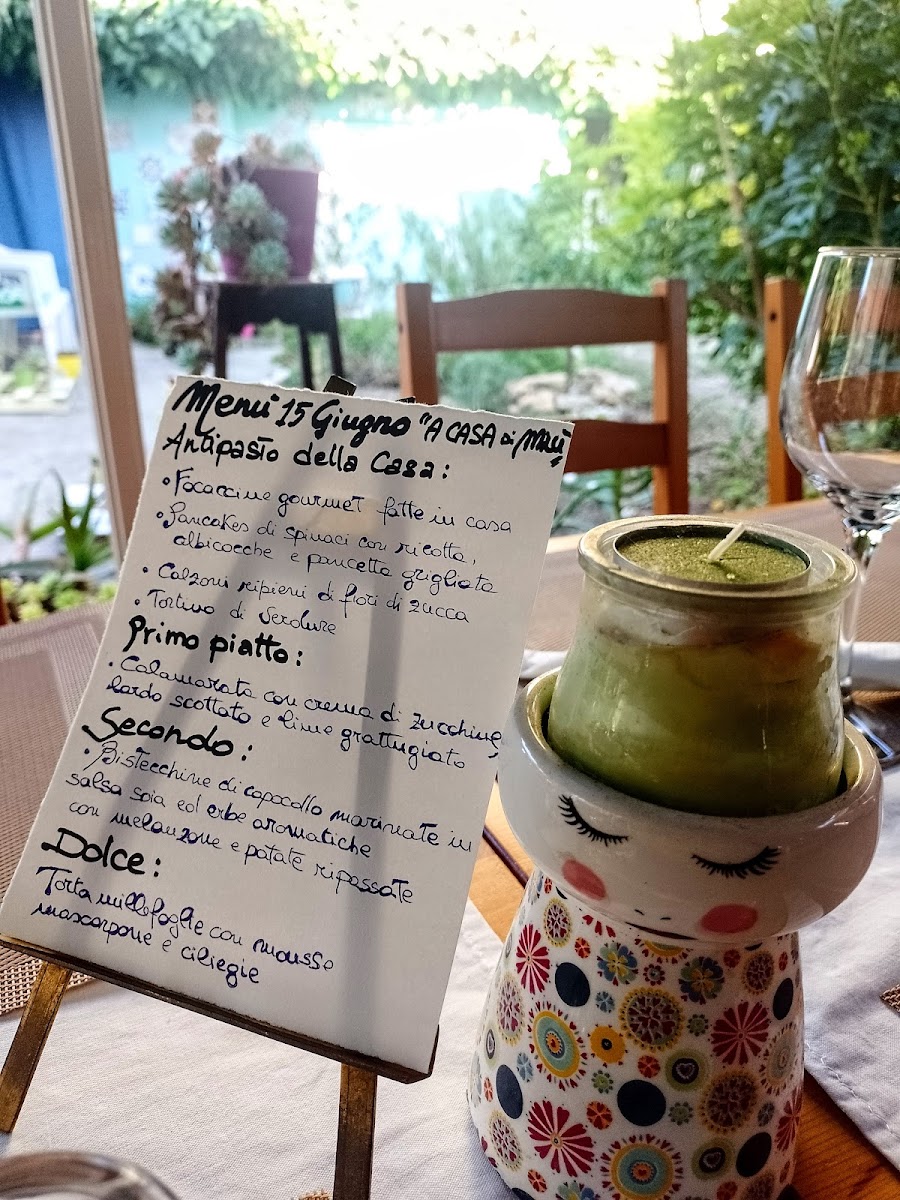 Menù 15 Giugno "A CASA di MIRÙ"
Antipasto della Casa:
• Focaccine gourmet fatte in casa
• Pancakes di spinaci con ricotta,
albicocche e pancetta grigliata
• Calzoni ripieni di fiori di zucca
• Tortino di verdure
Primo piatto:
• Calamarata con crema di zucchine,
lardo scottato e lime grattugiato
Secondo:
• Bistecchine di capocollo marinate in
salsa soia ed erbe aromatiche
con melanzane e patate ripassate
Dolce:
Torta millefoglie con mousse
mascarpone e ciliegie